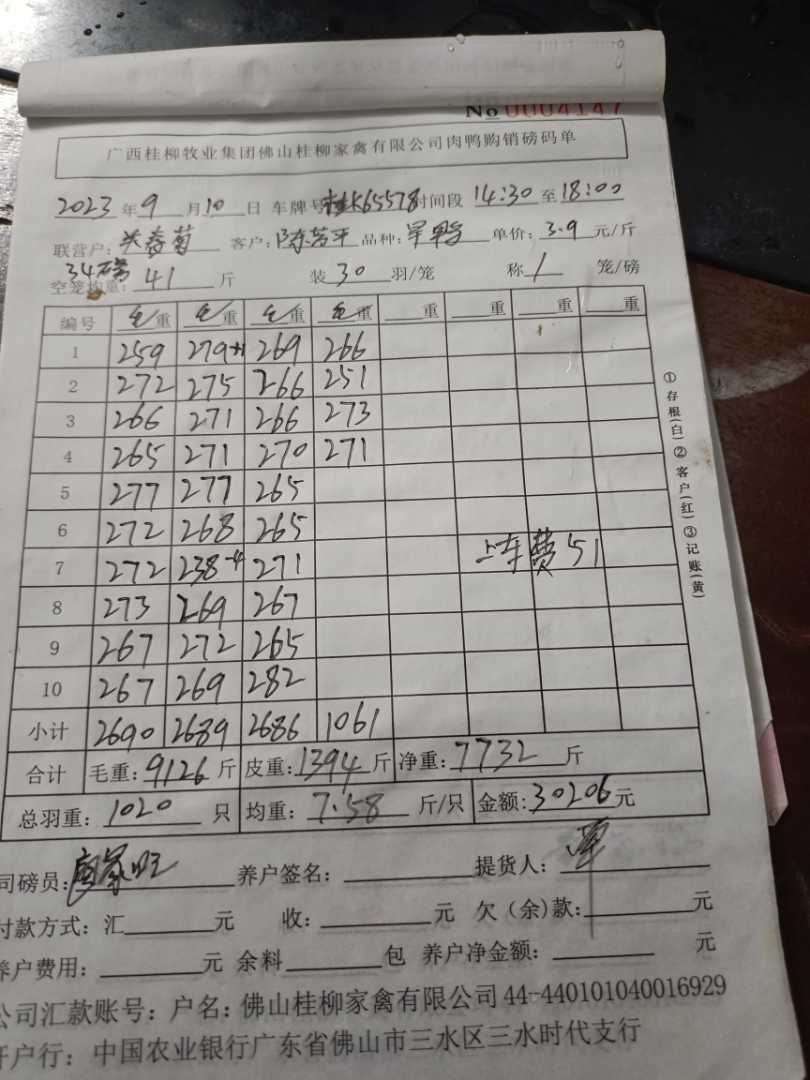 No 0004147
广西桂柳牧业集团佛山桂柳家禽有限公司肉鸭购销磅码单
2023年9月10日 车牌号桂K65578时间段 14:30至18:00
联营户: 关春菊 客户: 陈芳平 品种: 单价: 3.9元/斤
34磅
空笼均重: 41斤 装30羽/笼 称1笼/磅
编号 毛重 毛重 毛重 毛重 重 重 重 重
1 259 279+1 269 266
2 272 275 266 251
3 266 271 266 273
4 265 271 270 271
5 277 277 265
6 272 268 265
7 272 238-4 271 上车费51
8 273 269 267
9 267 272 265
10 267 269 282
小计 2690 2689 2686 1061
合计 毛重:9126斤 皮重:1394斤 净重:7732斤
总羽重: 1020只 均重: 7.58斤/只 金额:30206元
司磅员: 养户签名: 提货人:
付款方式: 汇 元 收: 元 欠(余)款: 元
养户费用: 元 余料 包 养户净金额: 元
公司汇款账号: 户名: 佛山桂柳家禽有限公司 44-440101040016929
开户行: 中国农业银行广东省佛山市三水区三水时代支行
①存根(白)②客户(红)③记账(黄)